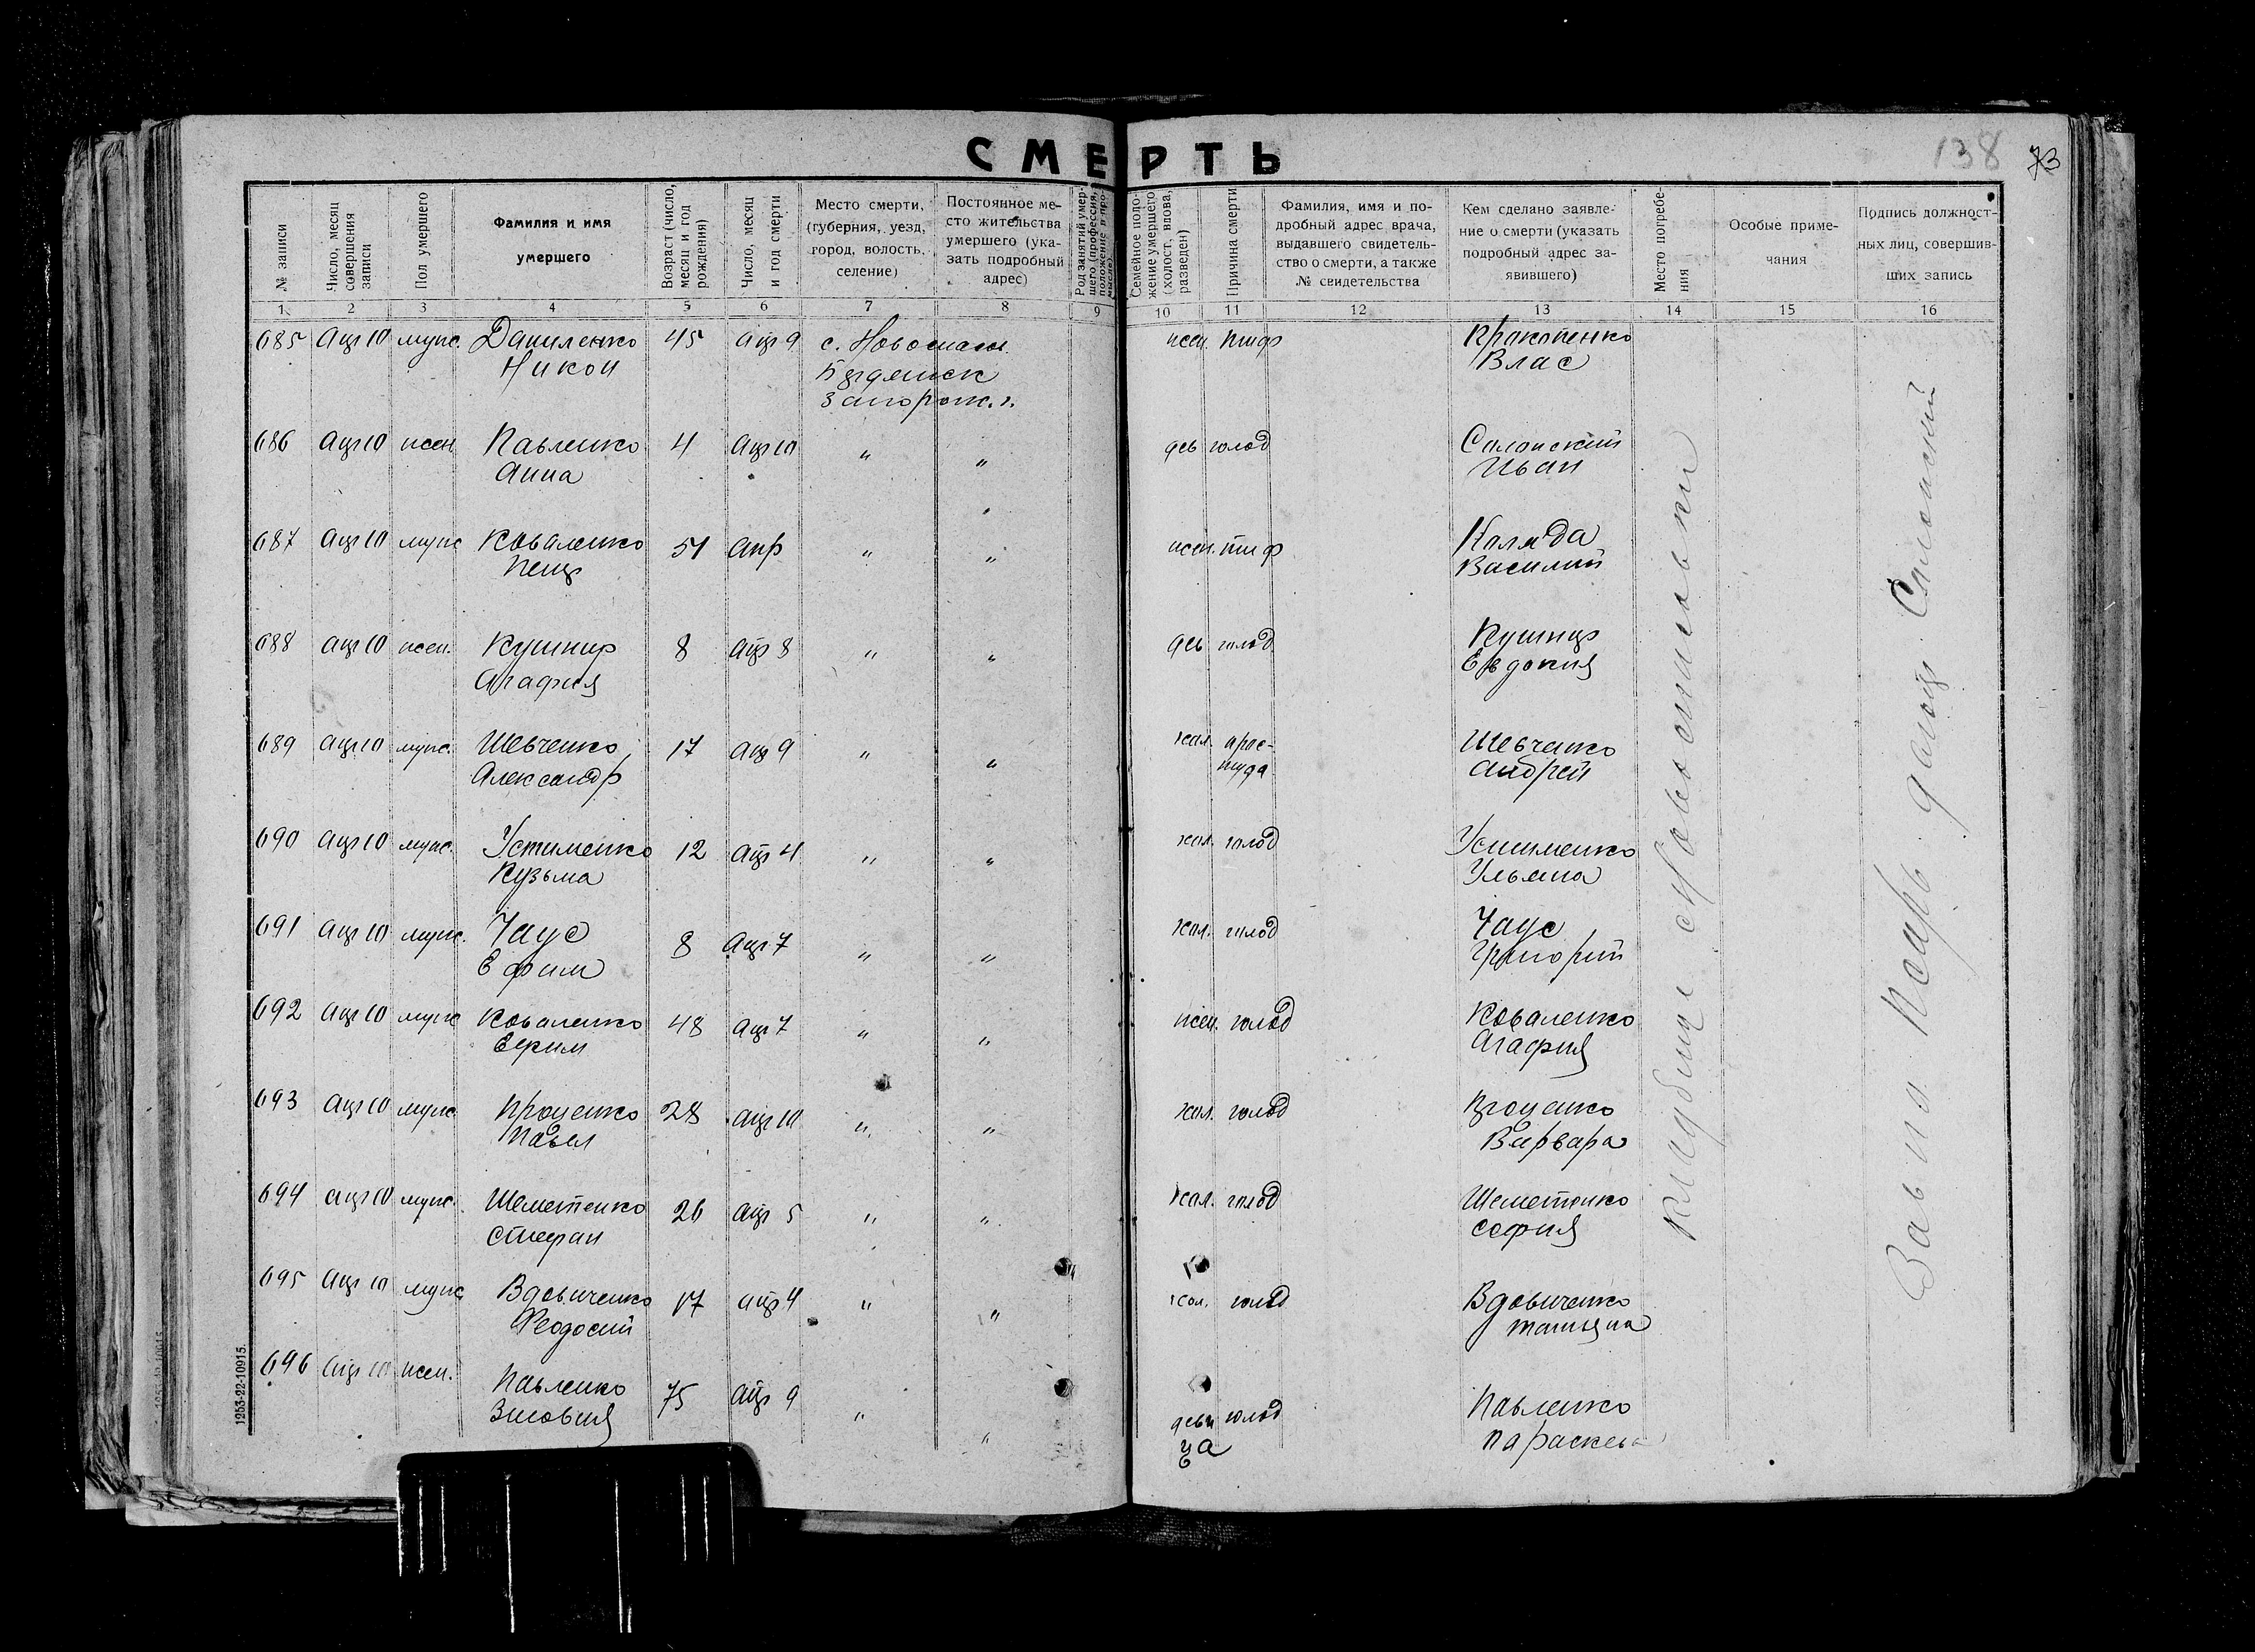 СМЕРТЬ
138 73
№ записи
Число, месяц совершения записи
Пол умершего
Фамилия и имя умершего
Возраст (число, месяц и год рождения)
Число, месяц и год смерти
Место смерти, (губерния, уезд, город, волость, селение)
Постоянное место жительства умершего (указать подробный адрес)
Род занятий умершего (профессия, положение в промысле)
Семейное положение умершего (холост, вдова, разведен)
Причина смерти
Фамилия, имя и подробный адрес врача, выдавшего свидетельство о смерти, а также № свидетельства
Кем сделано заявление о смерти (указать подробный адрес заявившего)
Место погребения
Особые примечания
Подпись должностных лиц, совершивших запись
1 2 3 4 5 6 7 8 9 10 11 12 13 14 15 16
685 Апр 10 муж. Даниленко 45 апр 9 с. жен. тиф
Никон Влас
Запорож. г.
686 Апр 10 жен Павленко 4 Апр 10 " " дев голод
Анна Иван
687 Апр 10 муж Коваленко 51 Апр " " жен. тиф Коляда
Петр Василий
688 апр 10 жен. Кушнир 8 апр 8 " " дев голод Кушнир
Агафия Евдокия
689 апр 10 муж. Шевченко 17 апр 9 " " хол. Шевченко
Александр Андрей
690 апр 10 муж. Устименко 12 апр 4 " " хол. голод Устименко
Кузьма Ульяна
691 апр 10 муж. Чаус 8 Апр 7 " " хол. голод Чаус
Ефим Григорий
692 апр 10 муж Коваленко 48 апр 7 " " жен. голод Коваленко
Агафия
693 апр 10 муж. Проценко 28 апр 10 " " хол. голод Проценко
Павел Варвара
694 апр 10 муж. Шеметенко 26 апр 5 " " хол. голод Шеметенко
Стефан София
695 апр 10 муж Вдовиченко 17 апр 4 " " хол. голод Вдовиченко
Феодосий Татьяна
696 апр 10 жен. Павленко 75 апр 9 " " деви голод Павленко
Зиновия ца Параскева
Кладбище с Новоспасовки
1253-22-10915.